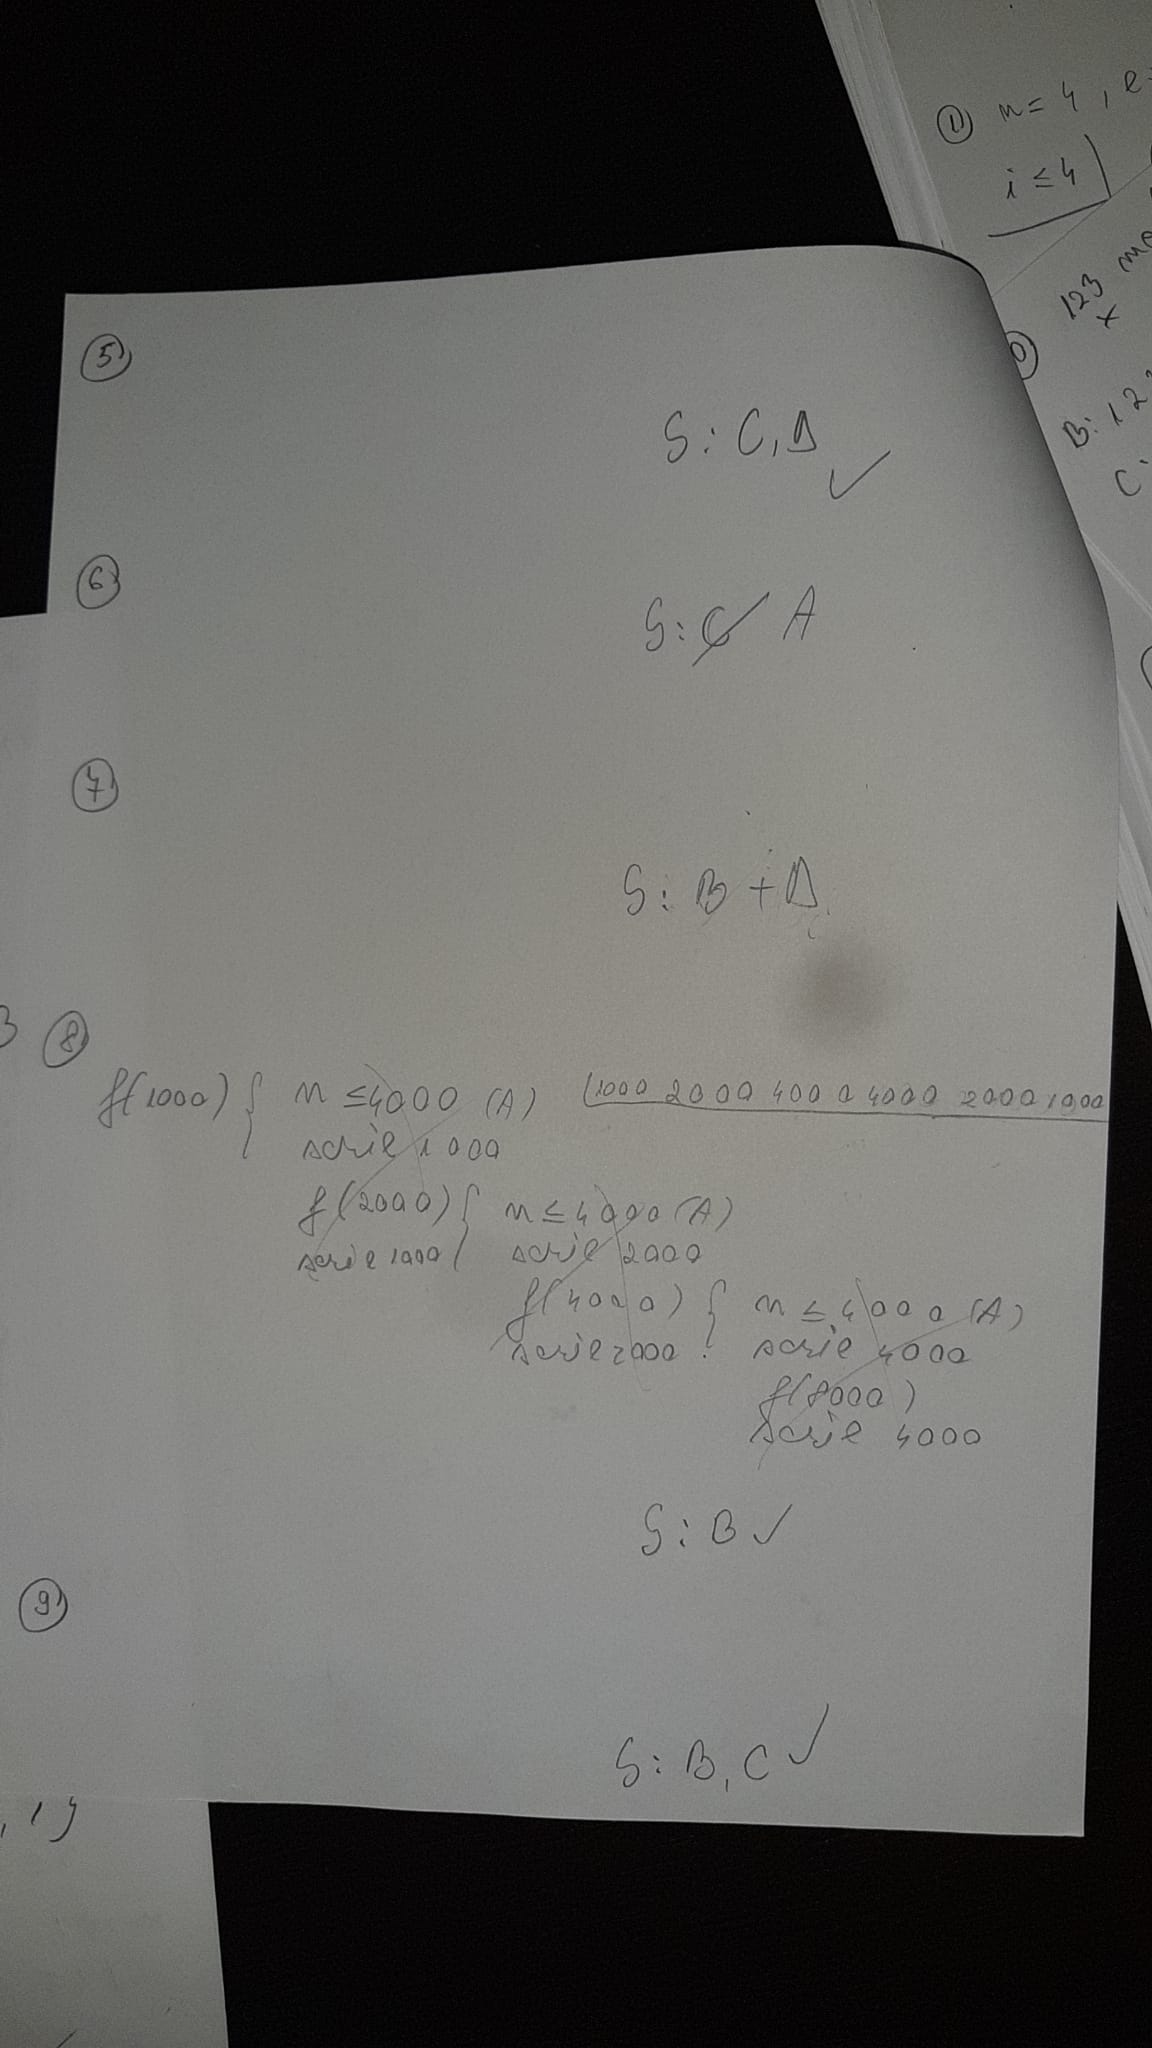 ⑤
S: C, D ✓
⑥
S: C A
⑦
S: B + D
⑧
f(1000) { n ≤ 4000 (A) 1000 2000 4000 4000 2000 1000
scrie 1000
f(2000) { n ≤ 4000 (A)
scrie 1000 scrie 2000
f(4000) { n ≤ 4000 (A)
scrie 2000 scrie 4000
f(8000)
scrie 4000
S: B ✓
⑨
S: B, C ✓
① n = 4 ,
i ≤ 4
123
x
B: 12
C